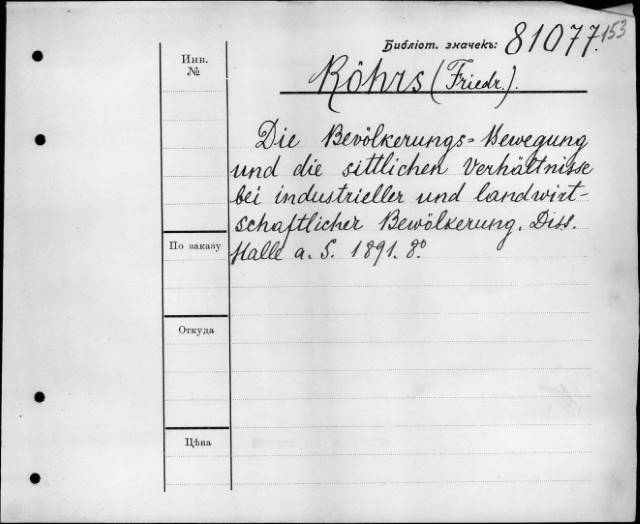 Библіот. значекъ: 81077.153
Инв.
№
Röhrs (Friedr.).
Die Bevölkerungs=Bewegung
und die sittlichen Verhältnisse
bei industrieller und landwirt-
schaftlicher Bewölkerung. Diss.
Halle a. S. 1891. 8°
По заказу
Откуда
Цѣна